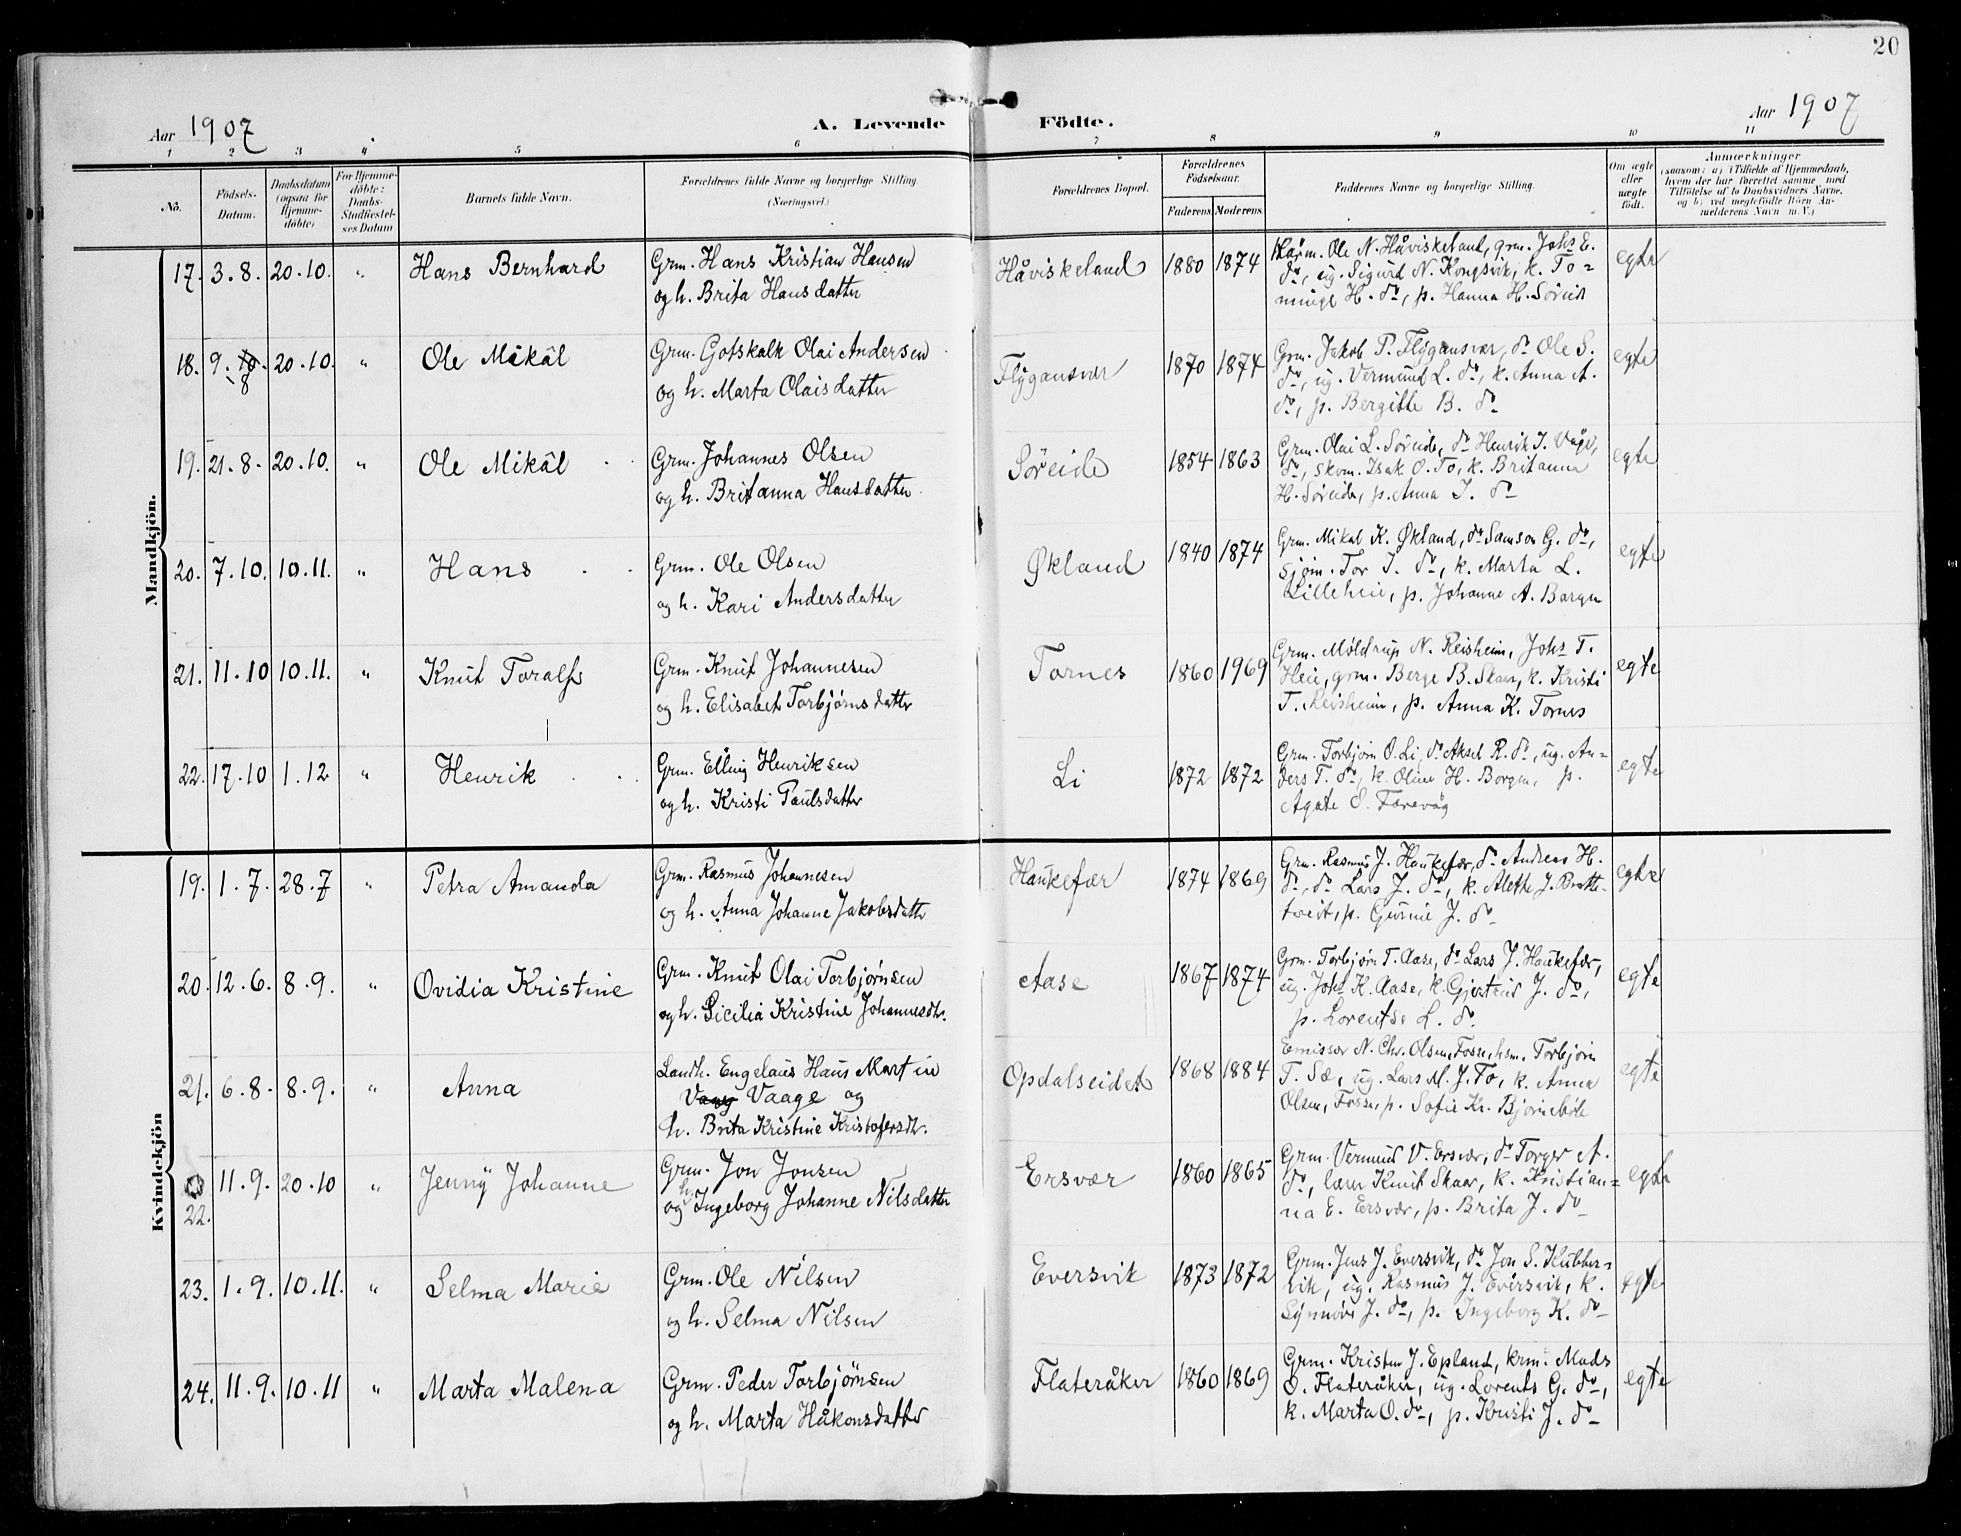 20
Aar 1907
A. Levende Födte.
Aar 1907
1 2 3 4 5 6 7 8 9 10 11
No.
Födsels-
Datum.
Daabsdatum
(ogsaa for
Hjemme-
döbte)
For Hjemme-
döbte:
Daabs-
Stadfæstel-
ses Datum
Barnets fulde Navn.
Forældrenes fulde Navne og borgerlige Stilling.
(Næringsvei.)
Forældrenes Bopæl.
Forældrenes
Födselsaar.
Faderens. Moderens.
Faddernes Navne og borgerlige Stilling.
Om ægte
eller
uægte
født.
Anmærkninger
(saasom: a) i Tilfælde af Hjemmedaab,
hvem der har forrettet samme med
Tilføielse af to Daabsvidners Navne,
og b) ved uegtefødte Börn An-
melderens Navn m. V.)
Mandkjön.
17. 3.8. 20.10. " Hans Bernhard
Grm. Hans Kristian Hansen
og h. Brita Hansdatter
Håviskeland 1880 1874
Ole N. Håviskeland, grm. Johs E.
do, ug. Sigurd N. Kongsvik, k. To-
H. do, p. Hanna H. Søreid
egte
18. 9. 10. 8 20.10. " Ole Mikâl
Grm. Gotskalk Olai Andersen
og h. Marta Olaisdatter
Flygansvær 1870 1874
Grm. Jakob P. Flygansvær, do Ole S.
do, ug. Vermund L. do, k. Anna A.
do, p. Bergitte B. do
egte
19. 21.8. 20.10. " Ole Mikâl
Grm. Johannes Olsen
og h. Britanna Hansdatter
Söreide 1854 1863
Grm. Olai L. Søreide, do Henrik J. Våge,
do, skom. Isak O. To, k. Britanna
H. Søreide, p. Anna J. do
egte
20. 7.10. 10.11. " Hans
Grm. Ole Olsen
og h. Kari Andersdatter
Økland 1840 1874
Grm. Mikal K. Økland, do Samson G. do,
sjøm. Tor J. do, k. Marta L.
Lilleheie, p. Johanne A. Borgen
egte
21. 11.10 10.11. " Knut Toralf
Grm. Knut Johannesen
og h. Elisabet Torbjørnsdatter
Tornes 1860 1969
Grm. Møldrup N. Reisheim, Johs T.
Heie, grm. Berge B. Skaar, k. Kristi
T. Reisheim, p. Anna K. Tornes
egte
22. 17.10 1.12. " Henrik
Grm. Elling Henriksen
og h. Kristi Paulsdatter
Li 1872 1872
Grm. Torbjørn O. Li, do Aksel R. do, ug. An-
ders T. do, k. Oline H. Borgen, p.
Agate E. Færevåg
egte
Kvindekjön
19. 1.7. 28.7 " Petra Amanda
Grm. Rasmus Johannesen
og h. Anna Johanne Jakobsdatter
Haukefær 1874 1869
Grm. Rasmus J. Haukefær, do Andreas H.
do, do Lars J. do, k. Alethe J. Bratte-
tveit, p. Gurine J. do
egte
20. 12.6. 8.9. " Ovidia Kristine
Grm. Knut Olai Torbjørnsen
og h. Sicilia Kristine Johannesdtr.
Aase 1867 1874
Grm. Torbjørn T. Aase, do Lars J. Haukefær,
ug. Johs K. Aase, k. Gjertrud J. do,
p. Lorentse L. do
egte
21. 6.8. 8.9. " Anna
Landh. Engelaus Hans Martin
Vaage og
h. Brita Kristine Kristofersdtr.
Opdalseidet 1868 1884
Emissær N. Chr. Olsen, Fosse, hsm. Torbjørn
T. Sæ, ug. Lars M. J. To, k. Anna
Olsen, Fosse, p. Sofie Kr. Bjørnebøle
egte
22. 11.9. 20.10 " Jenny Johanne
Grm. Jon Jonsen
og h. Ingeborg Johanne Nilsdatter
Ersvær 1860 1865
Grm. Vermund V. Ersvær, do Torger A.
do, lærer Knut Skaar, k. Kristian-
na E. Ersvær, p. Brita J. do
egte
23. 1.9. 10.11. " Selma Marie
Grm. Ole Nilsen
og h. Selma Nilsen
Eversvik 1873 1872
Grm. Jens J. Eversvik, do Jon S. Klubber-
vik, ug. Rasmus J. Eversvik, k.
Synnøve J. do, p. Ingeborg K. do
egte
24. 11.9. 10.11 " Marta Malena
Grm. Peder Torbjørnsen
og h. Marta Håkonsdatter
Flateråker 1860 1869
Grm. Kristen J. Epland, krm. Mads
O. Flateråker, ug. Lorents G. do,
k. Marta O. do, p. Kristi J. do
egte